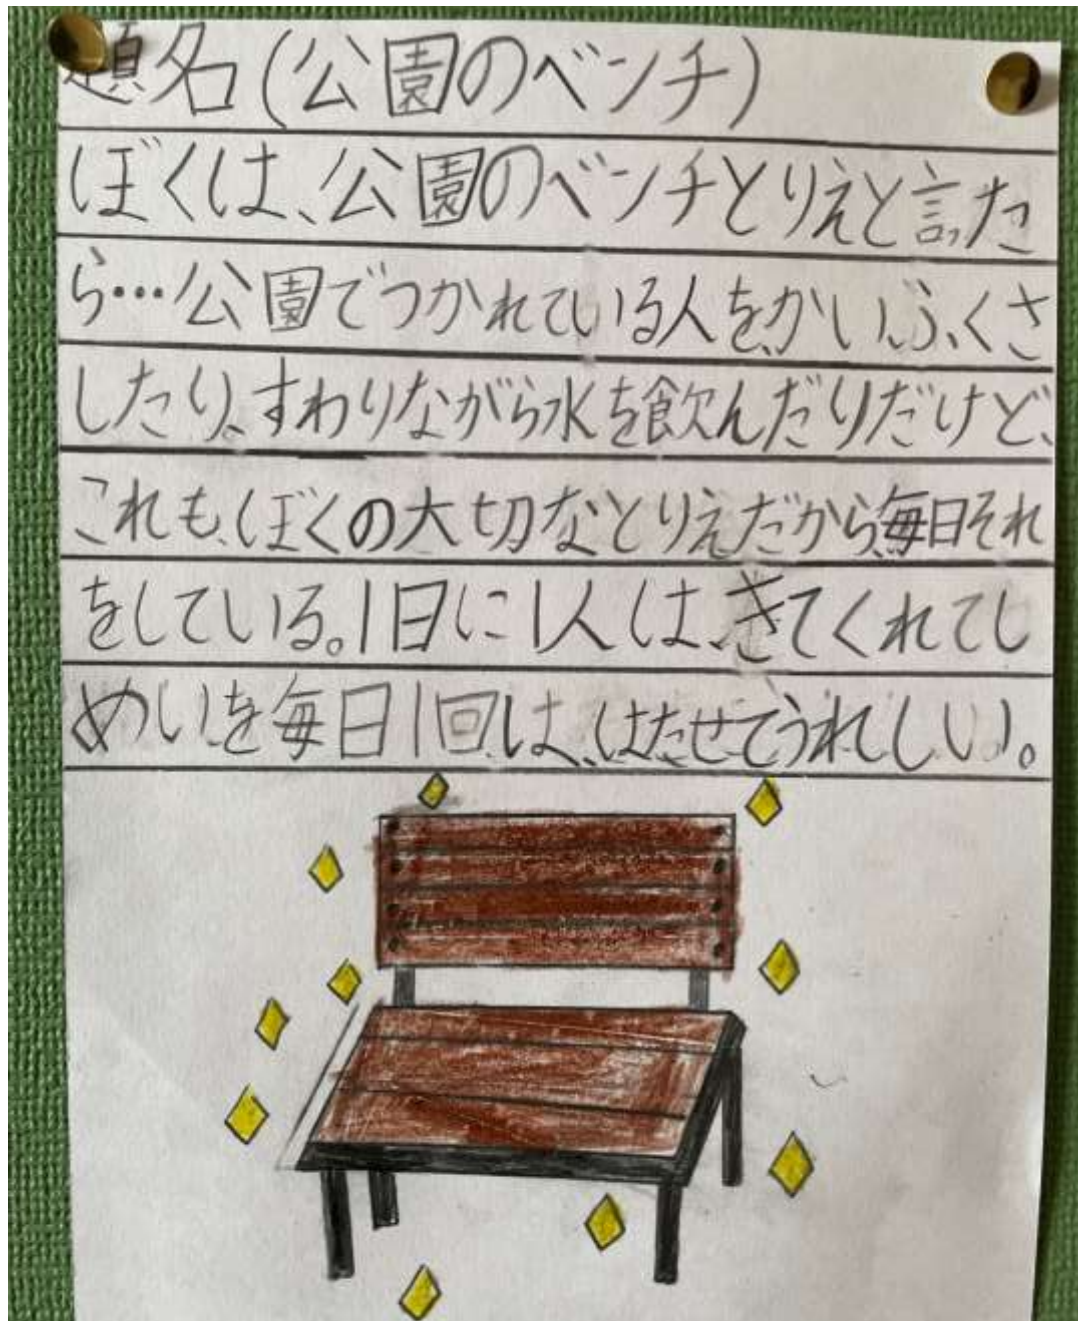 題名(公園のベンチ)
ぼくは、公園のベンチとりえと言った
ら…公園でつかれている人を、かいふくさ
したり、すわりながら水を飲んだりだけど、
これも、ぼくの大切なとりえだから、毎日それ
をしている。1日に1人は、きてくれてし
めいを毎日1回は、はたせてうれしい。